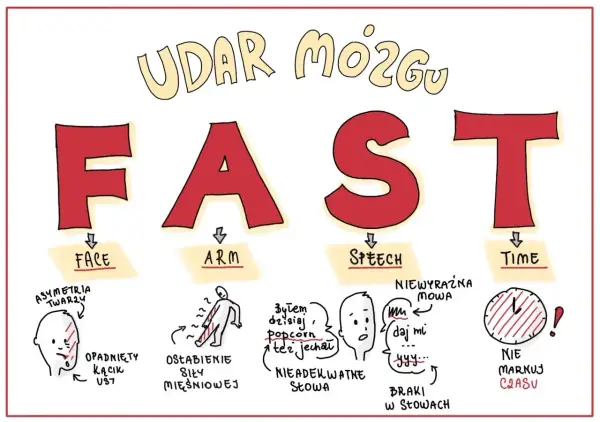 UDAR MÓZGU
FAST
FACE
ARM
SPEECH
TIME
ASYMETRIA
TWARZY
OPADNIĘTY
KĄCIK
UST
OSŁABIENIE
SIŁY
MIĘŚNIOWEJ
Byłem
dzisiaj,
popcorn
też jechał
NIEADEKWATNE
SŁOWA
NIEWYRAŹNA
MOWA
daj mi
...
yyy...
BRAKI
W SŁOWACH
NIE
MARNUJ
CZASU